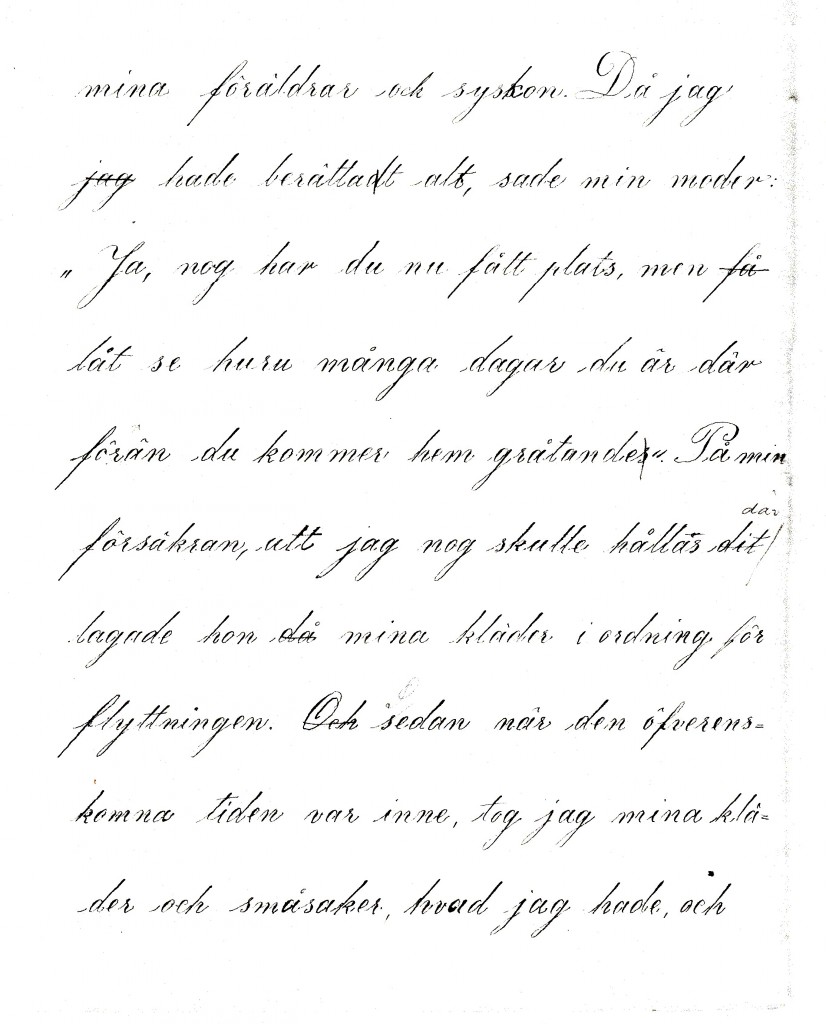 mina föräldrar och syskon. Då jag
jag hade berättadt alt, sade min moder:
„ Ja, nog har du nu fått plats, men få
låt se huru många dagar du är där
förän du kommer hem gråtandes“. På min
där
försäkran, att jag nog skulle hållas dit
lagade hon då mina kläder i ordning för
flyttningen. Och sedan när den öfverens=
komna tiden var inne, tog jag mina klä=
der och småsaker, hvad jag hade, och